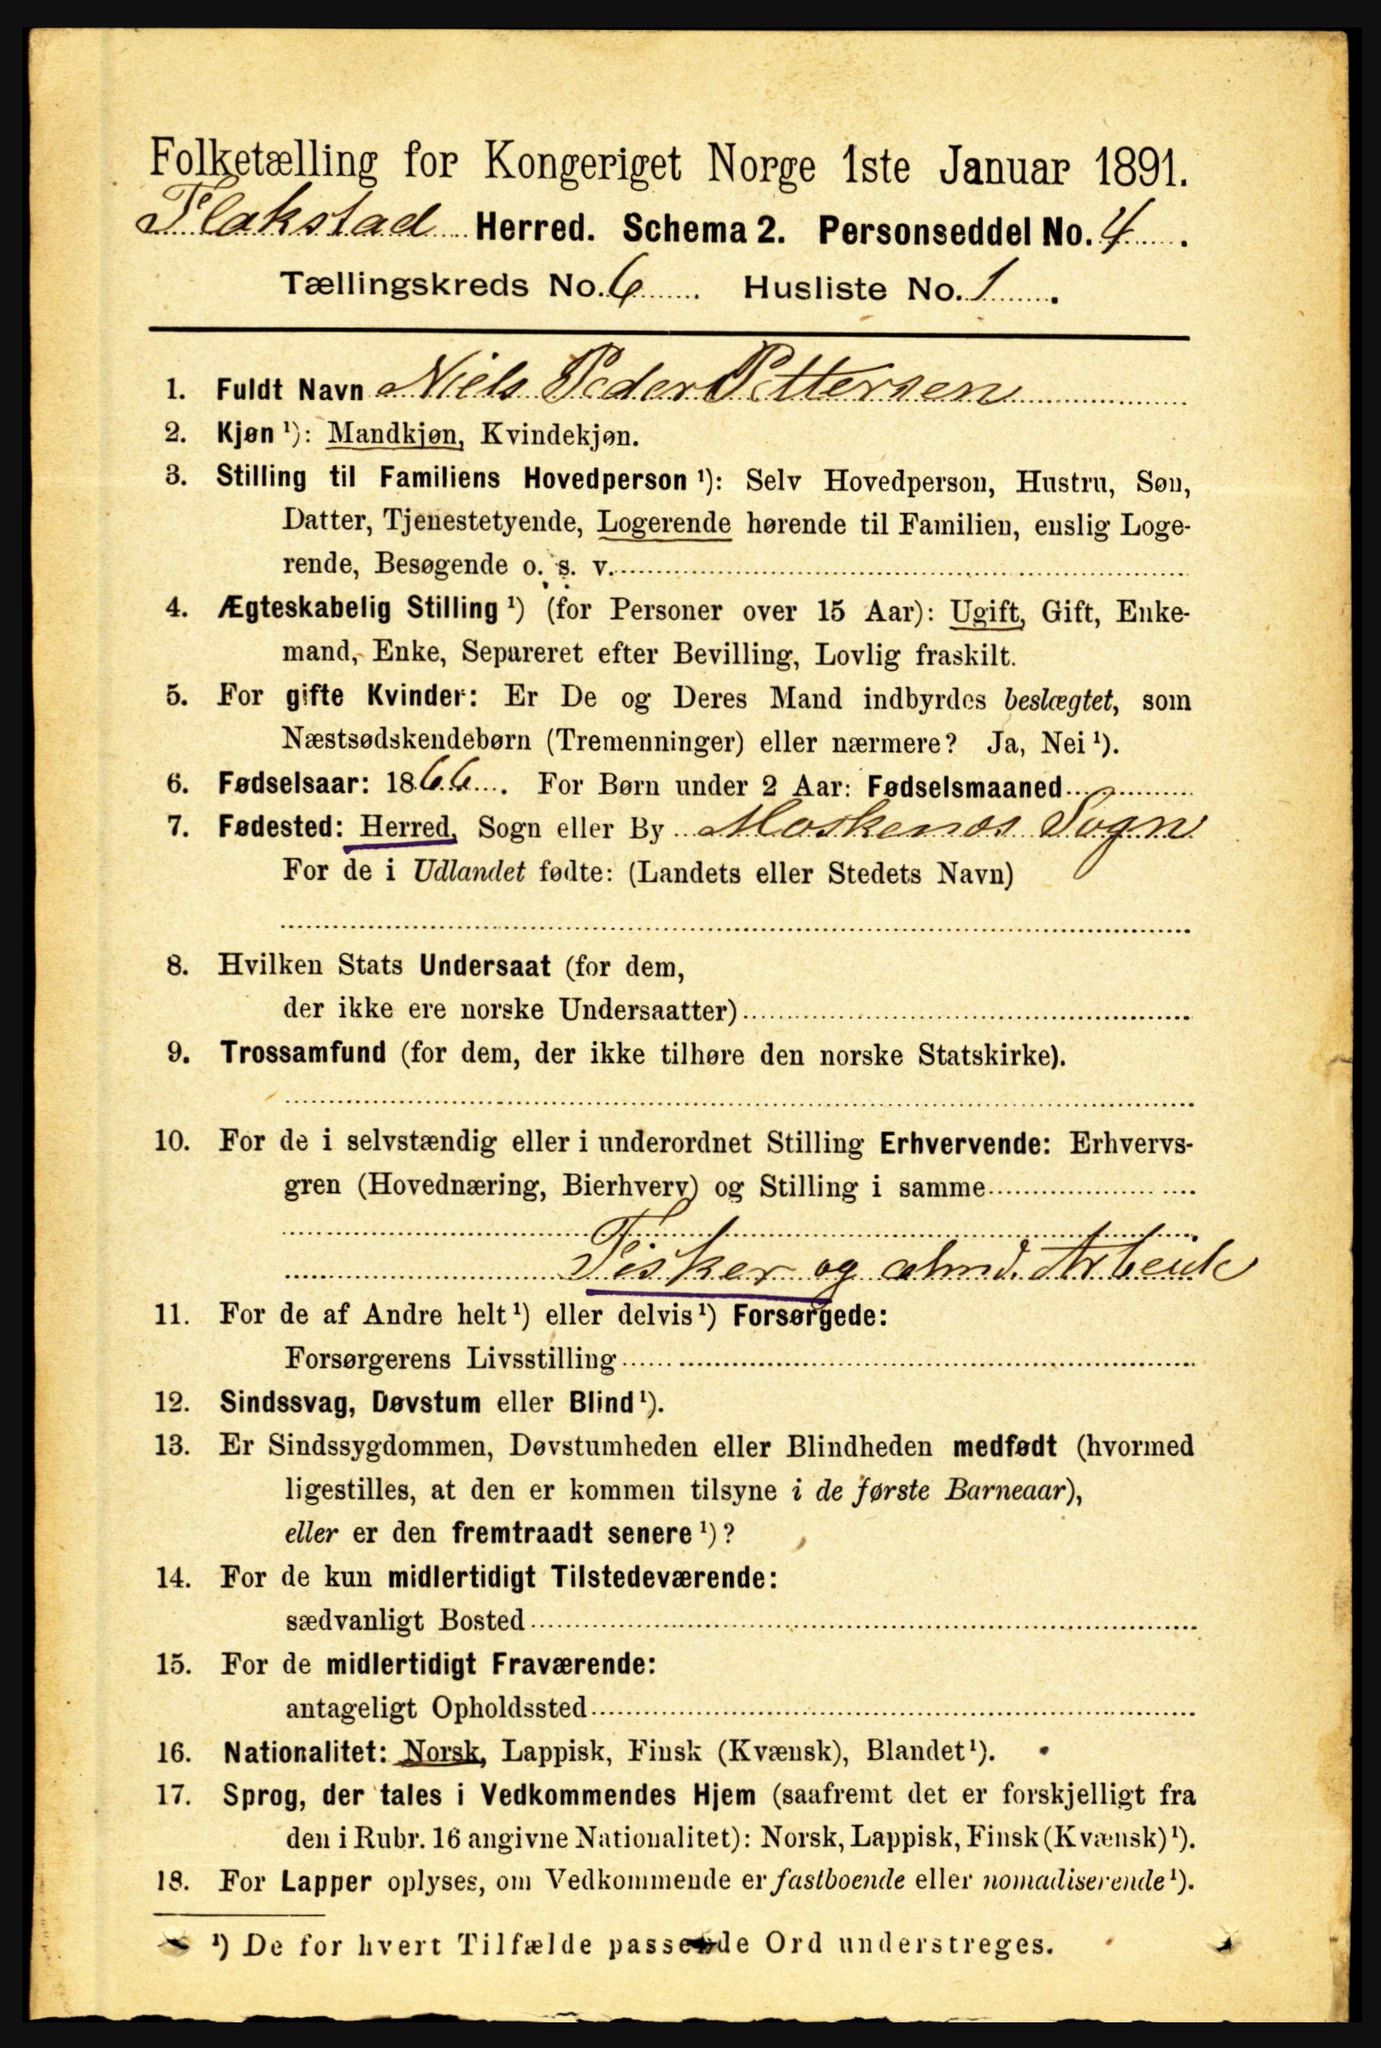 Folketælling for Kongeriget Norge 1ste Januar 1891.
Flakstad Herred. Schema 2. Personseddel No. 4.
Tællingskreds No. 6. Husliste No. 1.
1. Fuldt Navn Niels Peder Pettersen
2. Kjøn¹): Mandkjøn, Kvindekjøn.
3. Stilling til Familiens Hovedperson¹): Selv Hovedperson, Hustru, Søn,
Datter, Tjenestetyende, Logerende hørende til Familien, enslig Loge-
rende, Besøgende o. s. v.
4. Ægteskabelig Stilling¹) (for Personer over 15 Aar): Ugift, Gift, Enke-
mand, Enke, Separeret efter Bevilling, Lovlig fraskilt.
5. For gifte Kvinder: Er De og Deres Mand indbyrdes beslægtet, som
Næstsødskendebørn (Tremenninger) eller nærmere? Ja, Nei¹).
6. Fødselsaar: 1866. For Børn under 2 Aar: Fødselsmaaned
7. Fødested: Herred, Sogn eller By Moskenæs Sogn
For de i Udlandet fødte: (Landets eller Stedets Navn)
8. Hvilken Stats Undersaat (for dem,
der ikke ere norske Undersaatter)
9. Trossamfund (for dem, der ikke tilhøre den norske Statskirke).
10. For de i selvstændig eller i underordnet Stilling Erhvervende: Erhvervs-
gren (Hovednæring, Bierhverv) og Stilling i samme
Fisker og almd. Arbeide
11. For de af Andre helt¹) eller delvis¹) Forsørgede:
Forsørgerens Livsstilling
12. Sindssvag, Døvstum eller Blind¹).
13. Er Sindssygdommen, Døvstumheden eller Blindheden medfødt (hvormed
ligestilles, at den er kommen tilsyne i de første Barneaar),
eller er den fremtraadt senere¹)?
14. For de kun midlertidigt Tilstedeværende:
sædvanligt Bosted
15. For de midlertidigt Fraværende:
antageligt Opholdssted
16. Nationalitet: Norsk, Lappisk, Finsk (Kvænsk), Blandet¹).
17. Sprog, der tales i Vedkommendes Hjem (saafremt det er forskjelligt fra
den i Rubr. 16 angivne Nationalitet): Norsk, Lappisk, Finsk (Kvænsk)¹).
18. For Lapper oplyses, om Vedkommende er fastboende eller nomadiserende¹).
¹) De for hvert Tilfælde passende Ord understreges.